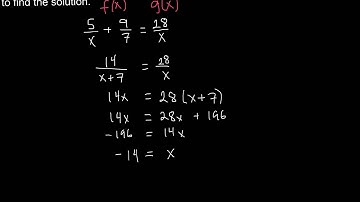 to find the solution.
f(x) g(x)
5/x + 9/7 = 28/x
14/(x+7) = 28/x
14x = 28(x+7)
14x = 28x + 196
-196 = 14x
-14 = x